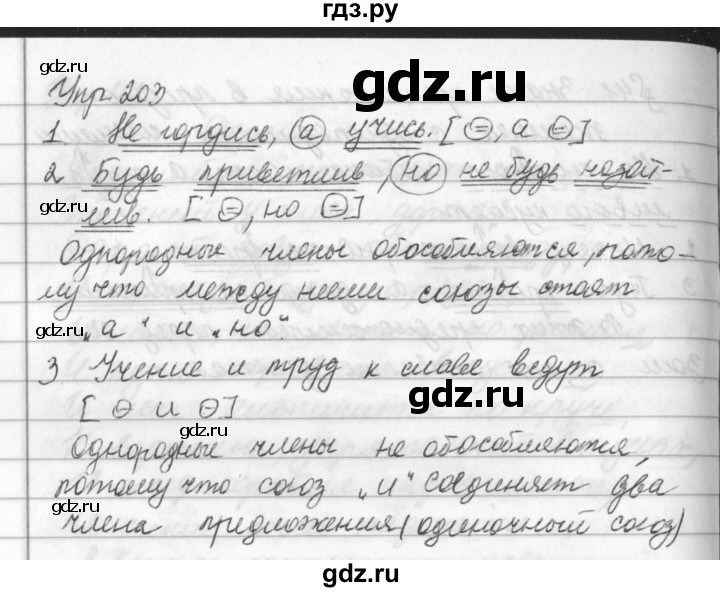 гдз.ру
gdz.ru
Упр 203
gdz.ru
1. Не гордись, а учись. [=, а =]
2. Будь приветлив, но не будь назой-
gdz.ru
лив. [=, но =]
Однородные члены обособляются, пото-
му что между ними союзы стоят
gdz.ru
„а“ и „но“.
3 Учение и труд к славе ведут
gdz.ru
[– и –]
gdz.ru
Однородные члены не обособляются,
потому что союз „и“ соединяет два
gdz.ru
члена предложения (одиночный союз)
gdz.ru